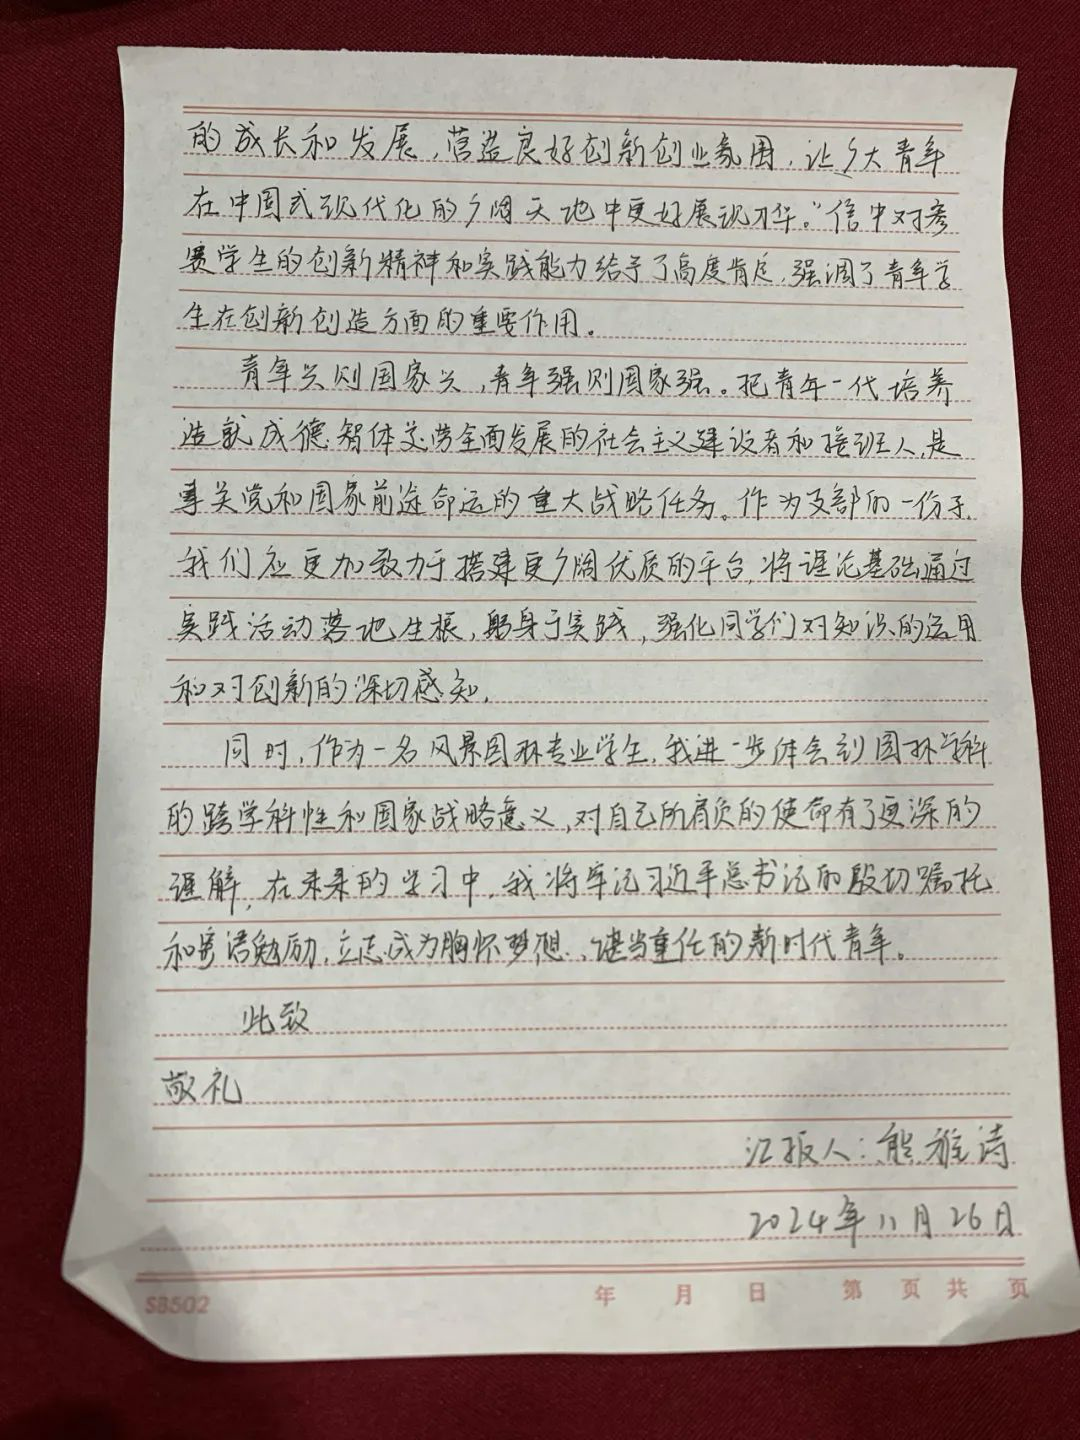 的成长和发展，营造良好创新创业氛围，让广大青年
在中国式现代化的广阔天地中更好展现才华。”信中对参
赛学生的创新精神和实践能力给予了高度肯定，强调了青年学
生在创新创造方面的重要作用。
青年兴则国家兴，青年强则国家强。把青年一代培养
造就成德智体美劳全面发展的社会主义建设者和接班人，是
事关党和国家前途命运的重大战略任务。作为支部的一份子，
我们应更加致力于搭建更广阔优质的平台，将理论基础通过
实践活动落地生根，躬身于实践，强化同学们对知识的运用
和对创新的深切感知。
同时，作为一名风景园林专业学生，我进一步体会到园林学科
的跨学科性和国家战略意义，对自己所肩负的使命有了更深的
理解，在未来的学习中，我将牢记习近平总书记的殷切嘱托
和寄语勉励，立志成为胸怀梦想、堪当重任的新时代青年。
此致
敬礼
汇报人：熊雅诗
2024年11月26日
SB502 年 月 日 第 页 共 页